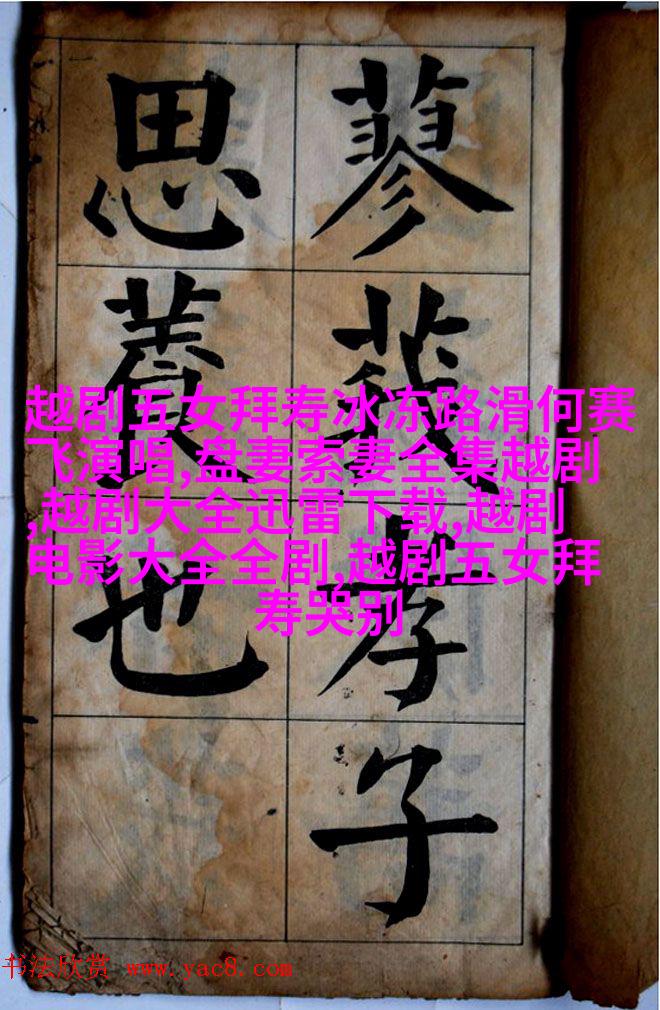 蓼莪孝子
思養也
越剧五女拜寿冰冻路滑何赛
飞演唱,盘妻索妻全集越剧
,越剧大全迅雷下载,越剧
电影大全全剧,越剧五女拜
寿哭别
书法欣赏 www.yac8.com